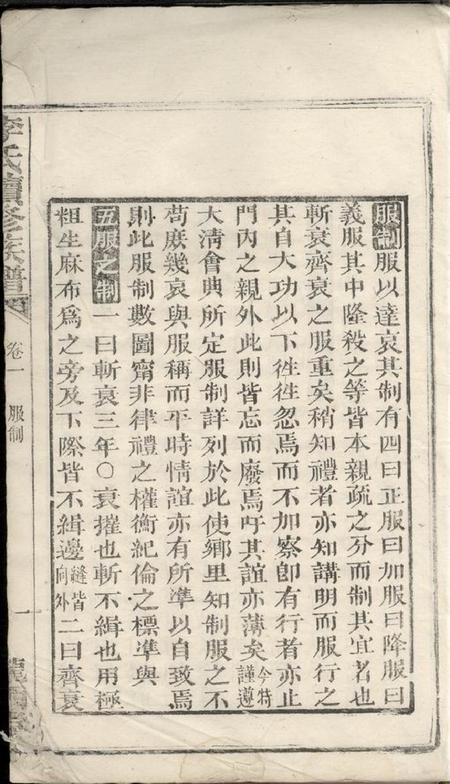 服制服以達哀其制有四曰正服曰加服曰降服曰
義服其中隆殺之等皆本親疏之分而制其宜者也
斬衰齊衰之服重矣稍知禮者亦知講明而服行之
其自大功以下徃徃忽焉而不加察卽有行者亦止
門內之親外此則皆忘而廢焉吁其誼亦薄矣今特謹遵
大清會典所定服制詳列於此使鄉里知制服之不
苟庶幾哀與服稱而平時情誼亦有所準以自致焉
則此服制數圖甯非律禮之權衡紀倫之標準與
五服之制一曰斬衰三年○衰摧也斬不緝也用極
粗生麻布爲之旁及下際皆不緝邊縫皆向外二曰齊衰
李氏續修族譜
卷一
服制
一